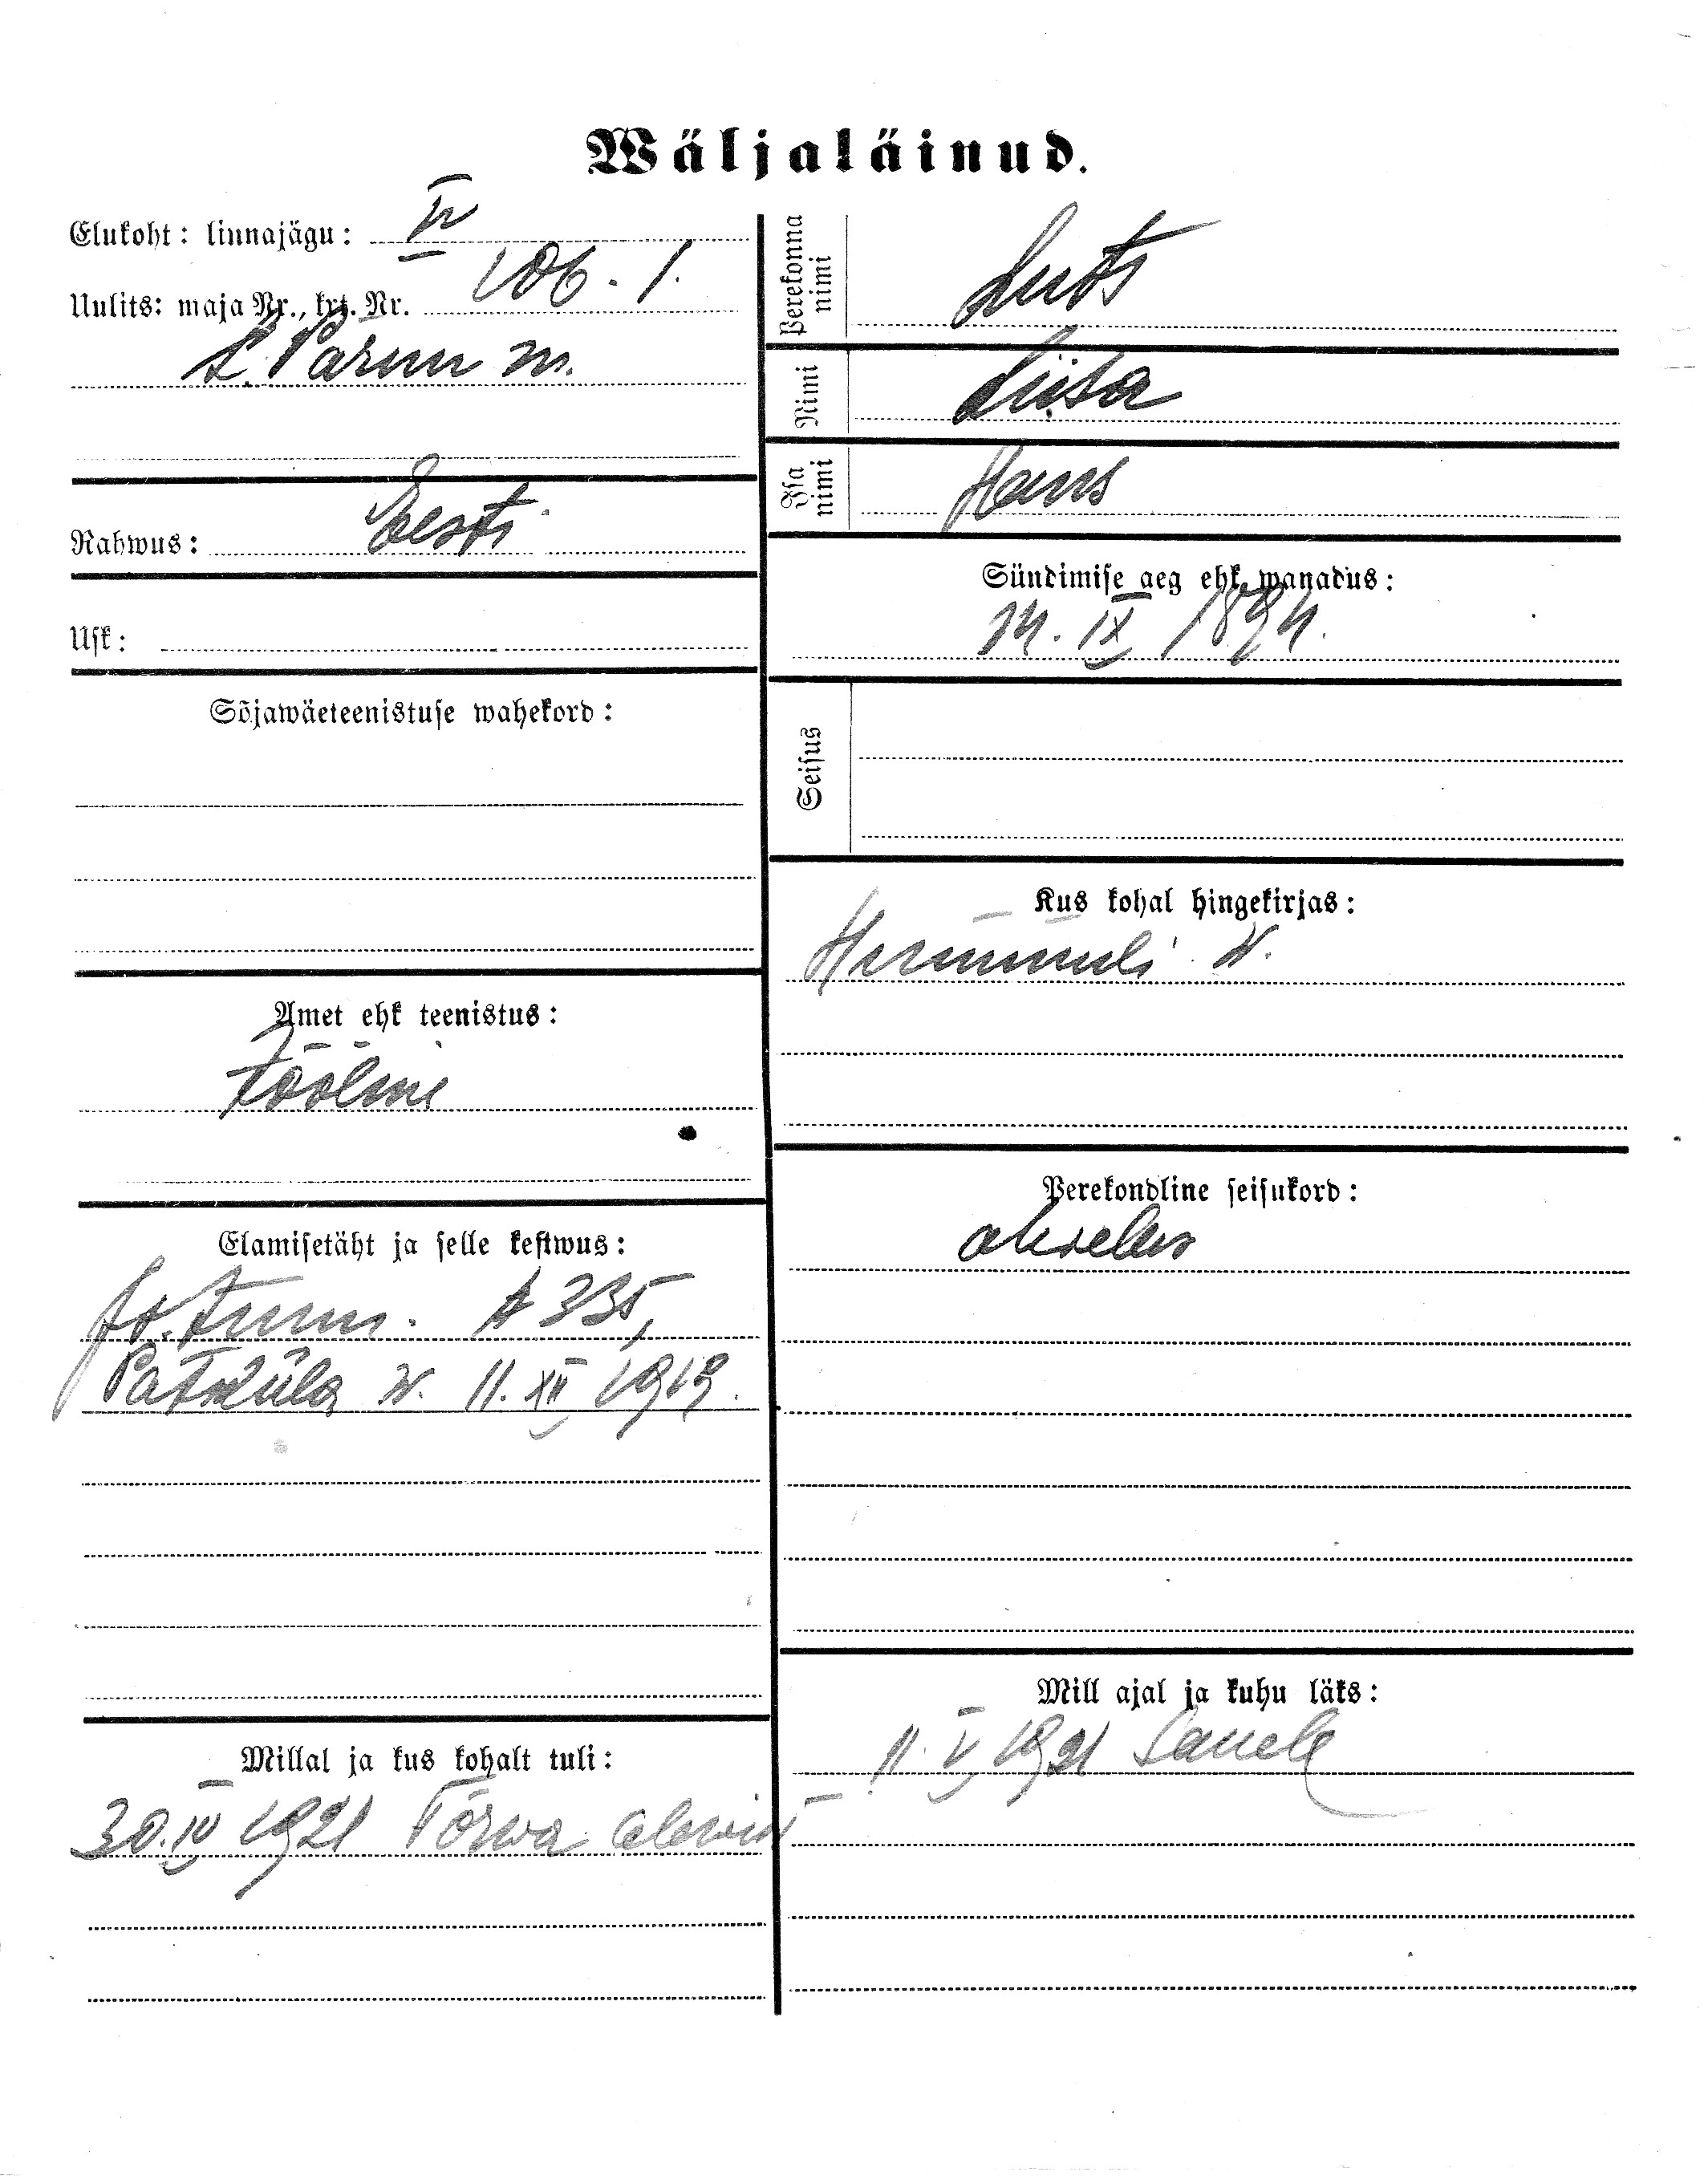 Wäljaläinud.
Elukoht: linnajägu: IV
Uulits: maja Nr., krt. Nr. 106 - 1.
S. Pärnu m.
Rahwus: Eesti
Usk:
Sõjawäeteenistuse wahekord:
Amet ehk teenistus:
tööline
Elamisetäht ja selle kestwus:
A 335,
Patküla w. 11. XII 1919.
Millal ja kus kohalt tuli:
30. IV 1921 Tõrwa alewist
Perekonna nimi Luts
Nimi Liisa
Isa nimi Hans
Sündimise aeg ehk wanadus:
14. IX 1894.
Seisus
Kus kohal hingekirjas:
Hummuli w.
Perekondline seisukord:
Mill ajal ja kuhu läks:
11. V 1921